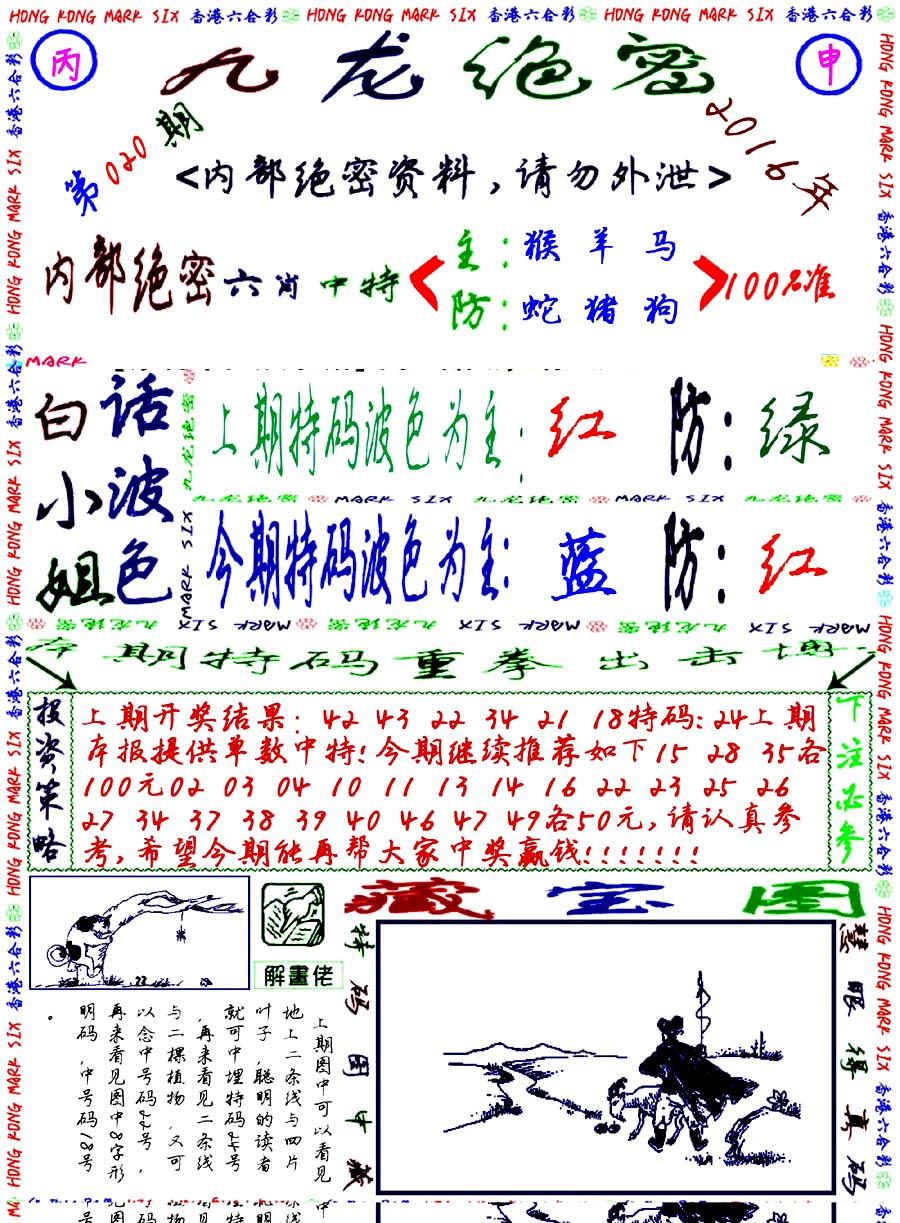 HONG KONG MARK SIX 香港六合彩 HONG KONG MARK SIX 香港六合彩 HONG KONG MARK SIX 香港六合彩
丙 九龙绝密 申
第020期 2016年
<内部绝密资料，请勿外泄>
内部绝密六肖中特
主：猴羊马
防：蛇猪狗
100%准
MARK
白小姐
话波色
上期特码波色为主：红 防：绿
九龙绝密 MARK SIX 九龙绝密 MARK SIX 九龙绝密
今期特码波色为主：蓝 防：红
九龙绝密 MARK SIX 九龙绝密 MARK SIX 九龙绝密 MARK SIX
本期特码重拳出击博
投资策略
上期开奖结果：42 43 22 34 21 18特码：24上期
本报提供单数中特！今期继续推荐如下15 28 35各
100元02 03 04 10 11 13 14 16 22 23 25 26
27 34 37 38 39 40 46 47 49各50元，请认真参
考，希望今期能再帮大家中奖赢钱！！！！！！！
下注必参
解畫佬
藏宝图
特码图中藏
慧眼得真码
上期图中可以看见
地上二条线与四片
叶子，聪明的读者
就可中埋特码24号
，再来看见二条线
与二棵植物，又可
以念中号码22号，
再来看见图中8字形
明码，中号码18号
。